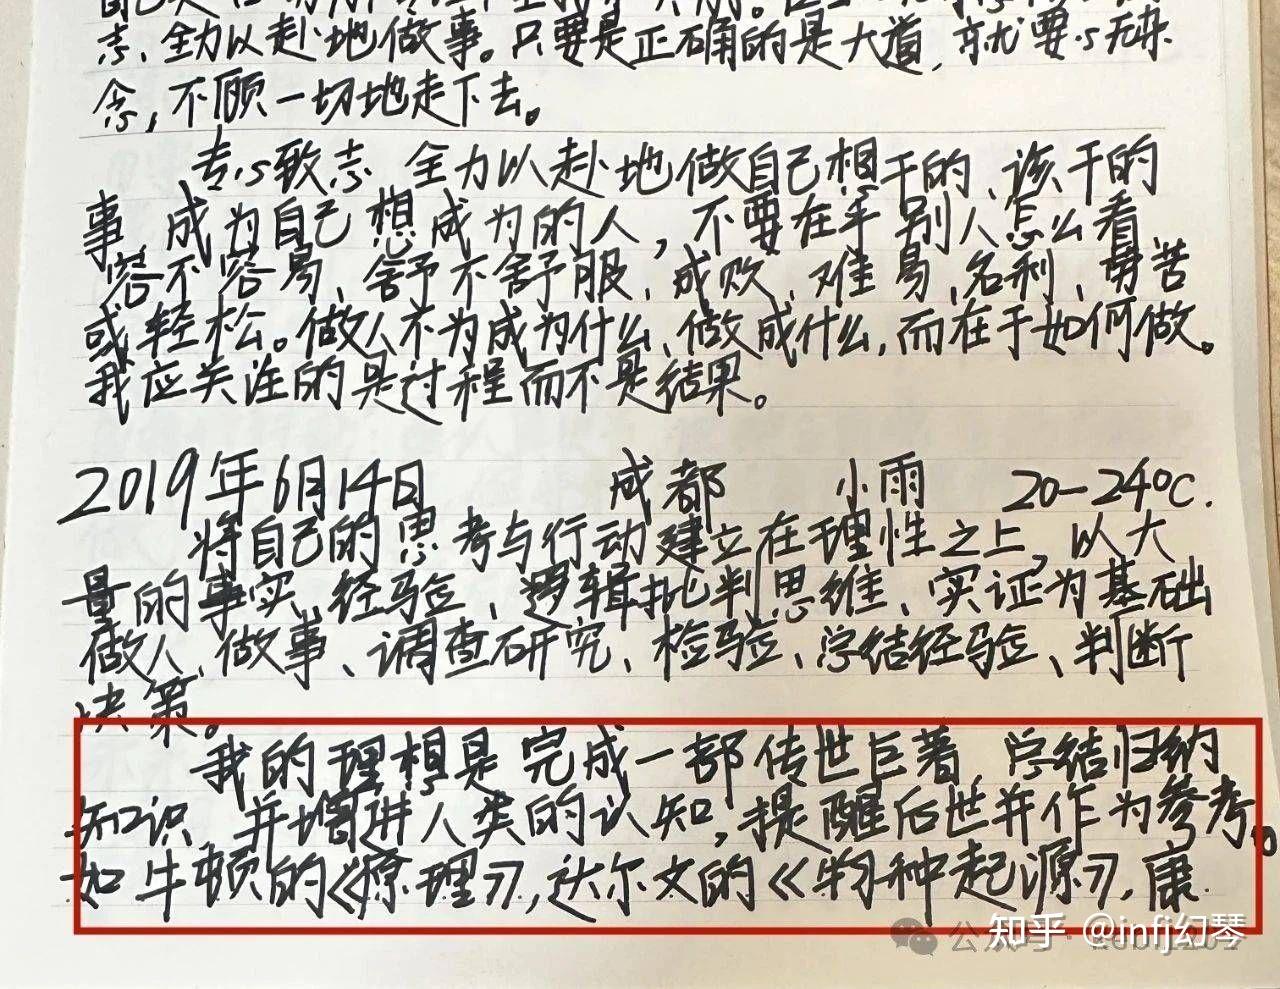 志、全力以赴地做事。只要是正确的是大道，就要心无杂
念，不顾一切地走下去。
专心致志、全力以赴地做自己想干的、该干的
事，成为自己想成为的人，不要在乎别人怎么看
容不容易、舒不舒服、成败、难易、名利、劳苦
或轻松。做人不为成为什么、做成什么，而在于如何做。
我应关注的是过程而不是结果。
2019年6月14日 成都 小雨 20-24°C.
将自己的思考与行动建立在理性之上，以大
量的事实、经验、逻辑批判思维、实证为基础
做人、做事、调查研究、检验、总结经验、判断
决策。
我的理想是完成一部传世巨著，总结归纳
知识，并增进人类的认知，提醒后世并作为参考。
如牛顿的《原理》，达尔文的《物种起源》，康
公众号·
知乎 @infj幻琴